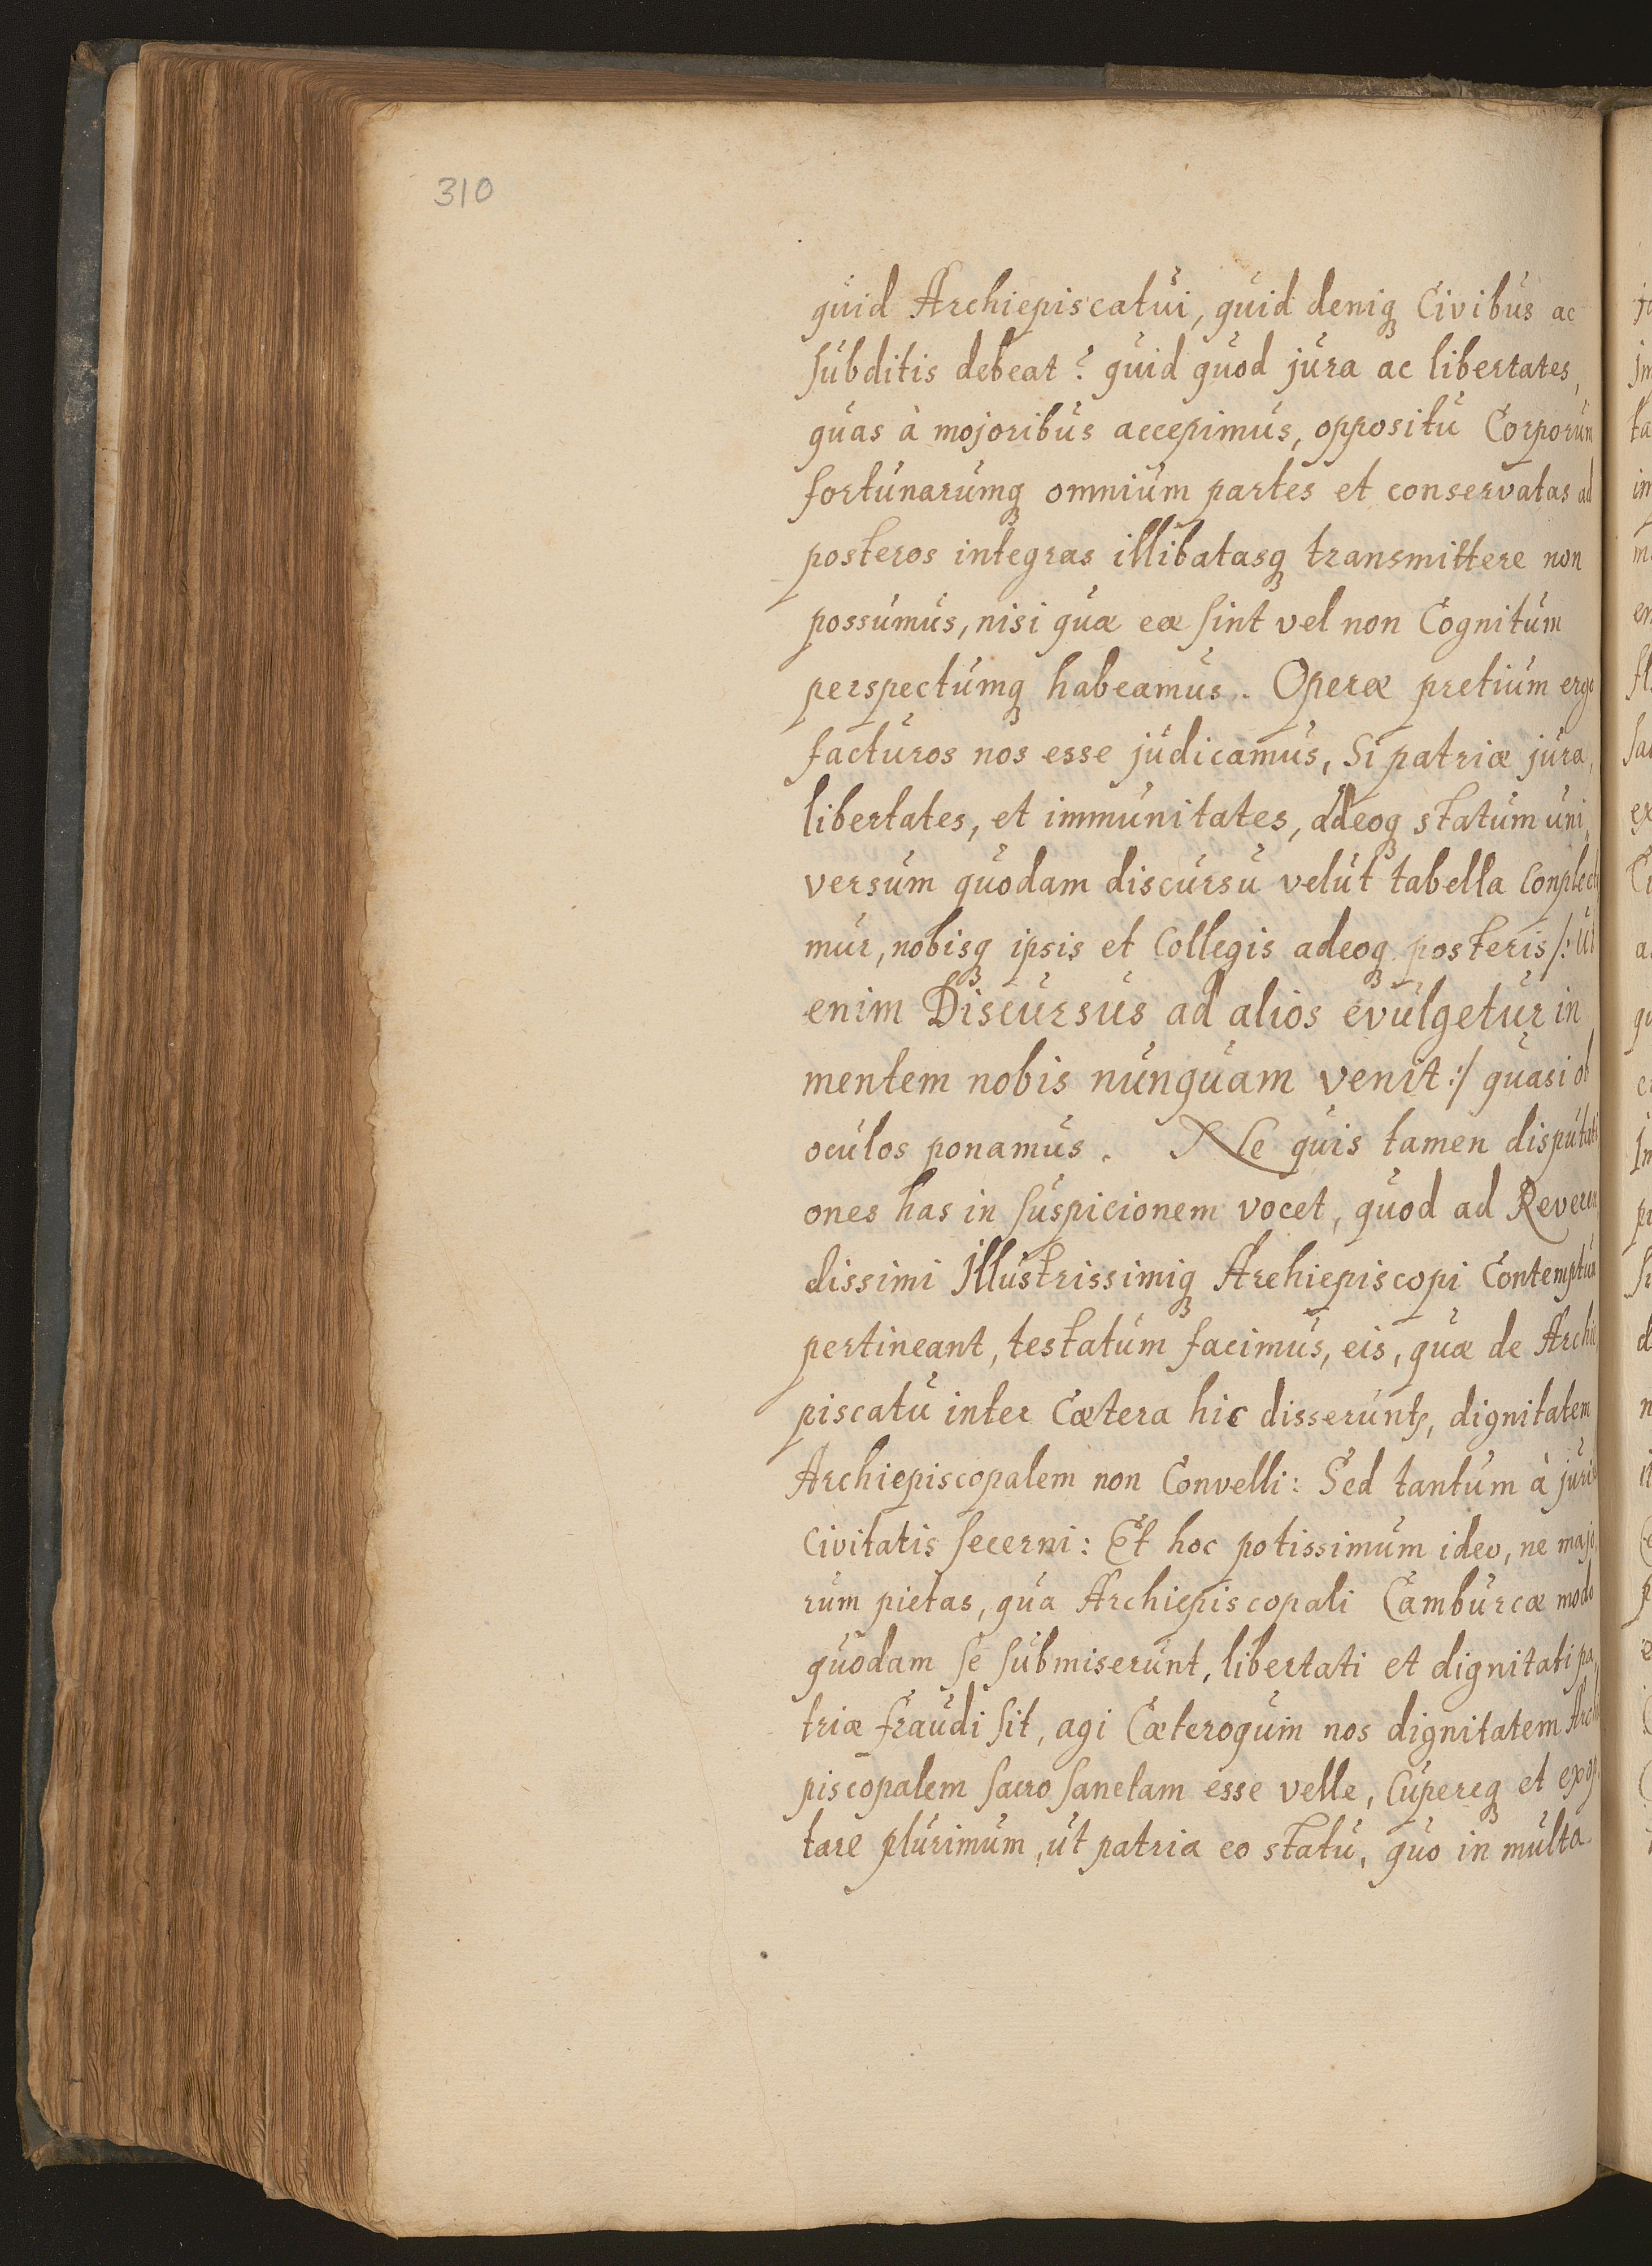 310
quid Archiepiscatui, quid deniq Civibus ac
subditis debeat? quid quod jura ac libertates,
quas à mojoribus accepimus, oppositu Corporum
fortunarumq omnium partes et conservatas ad
posteros integras illibatasq transmittere non
possumus, nisi quæ eæ sint vel non Cognitum
perspectumq habeamus. Operæ pretium ergo
facturos nos esse judicamus, Si patriæ jura,
libertates, et immunitates, adeoq statum uni,
versum quodam discursu velut tabella Conplecti
mur, nobisq ipsis et Collegis adeoq posteris /: Ut
enim Discursus ad alios evulgetur in
mentem nobis nunquam venit :/ quasi ob
oculos ponamus. Ne quis tamen disputati
ones has in suspicionem vocet, quod ad Reveren
dissimi Illustrissimiq Archiepiscopi Contemptum
pertineant, testatum facimus, eis, quæ de Archie
piscatu inter Cætera hic disserunt, dignitatem
Archiepiscopalem non Convelli: Sed tantum à juri
Civitatis secerni: Et hoc potissimum ideo, ne majo
rum pietas, qua Archiepiscopali Camburcæ modo
quodam se submiserunt, libertati et dignitati pa,
triæ fraudi sit, agi Cæteroquin nos dignitatem Archi
piscopalem sacro sanctam esse velle, Cupereq et exop
tare plurimum, ut patria eo statu, quo in multa